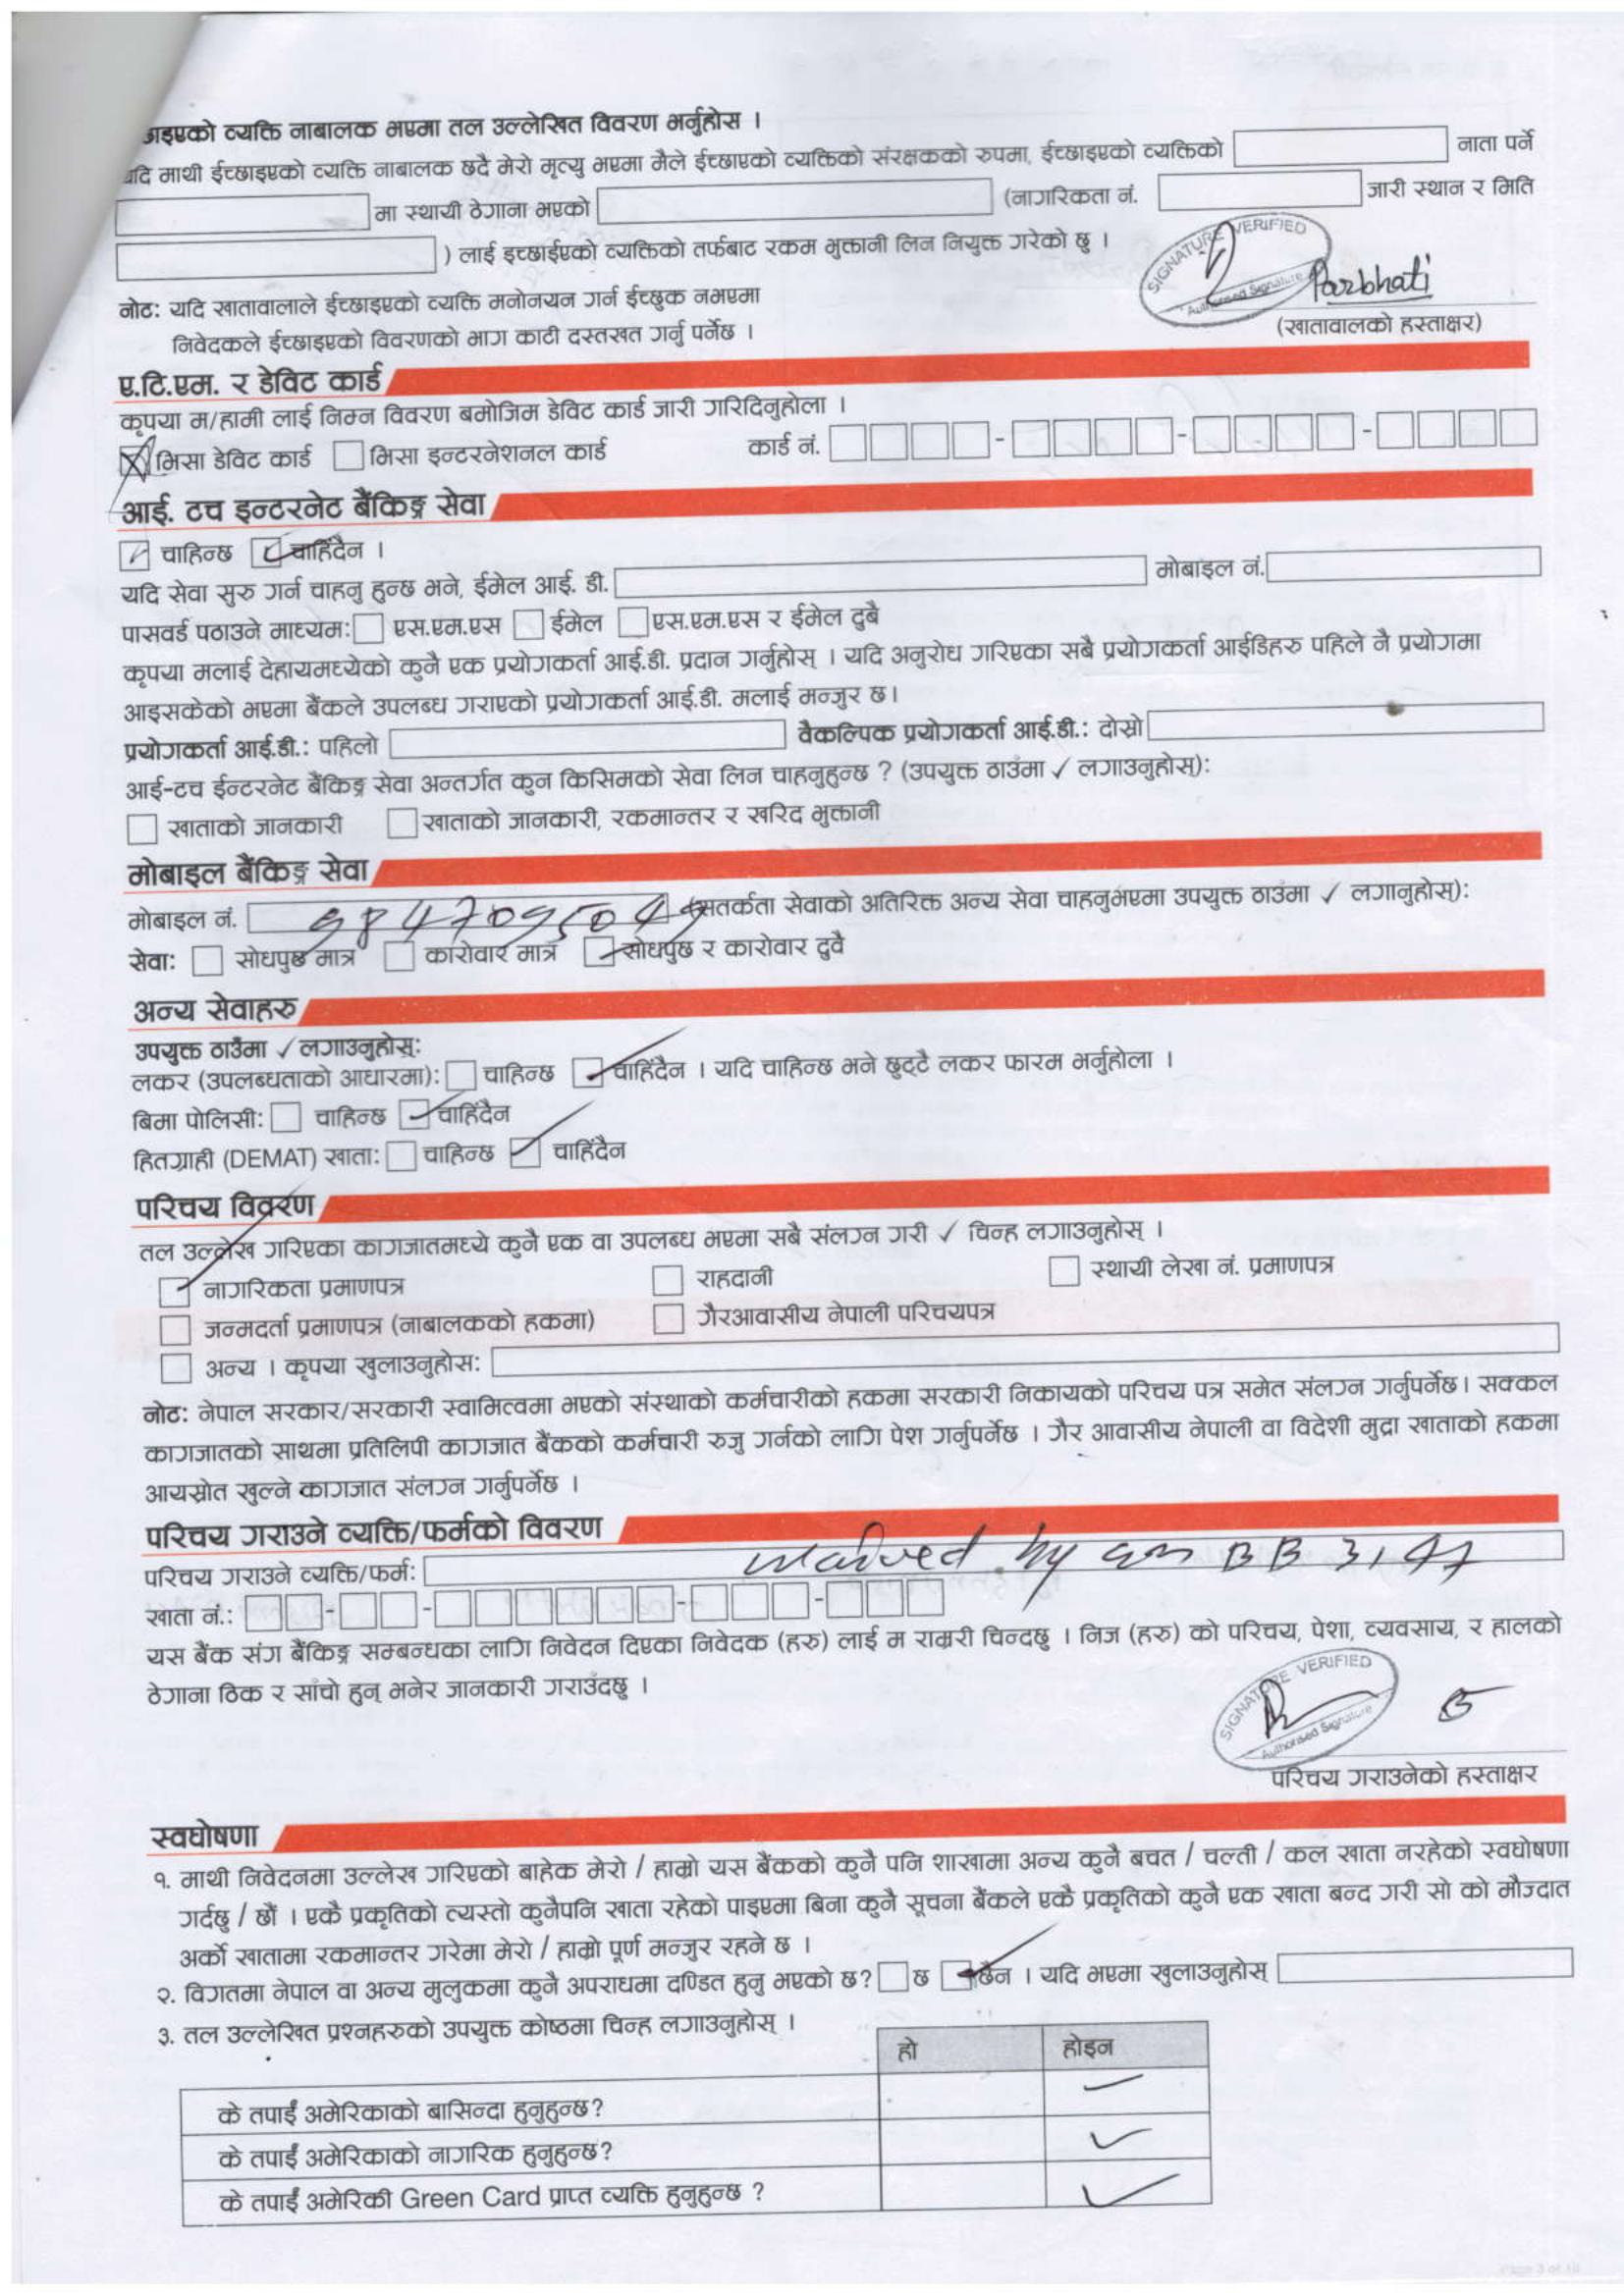 व्यक्ति नाबालक भएमा तल उल्लेखित विवरण भर्नुहोस ।
यदि माथी ईच्छाइएको व्यक्ति नाबालक छदै मेरो मृत्यु भएमा मैले ईच्छाएको व्यक्तिको संरक्षकको रुपमा, ईच्छाइएको व्यक्तिको नाता पर्ने
मा स्थायी ठेगाना भएको (नागरिकता नं. जारी स्थान र मिति
) लाई इच्छाईएको व्यक्तिको तर्फबाट रकम भुक्तानी लिन नियुक्त गरेको छु ।
SIGNATURE VERIFIED
Authorised Signature
Parbhati
नोट: यदि खातावालाले ईच्छाइएको व्यक्ति मनोनयन गर्न ईच्छुक नभएमा
(खातावालको हस्ताक्षर)
निवेदकले ईच्छाइएको विवरणको भाग काटी दस्तखत गर्नु पर्नेछ ।
ए.टि.एम. र डेविट कार्ड
कृपया म/हामी लाई निम्न विवरण बमोजिम डेविट कार्ड जारी गरिदिनुहोला ।
भिसा डेविट कार्ड भिसा इन्टरनेशनल कार्ड कार्ड नं.
आई. टच इन्टरनेट बैंकिङ्ग सेवा
चाहिन्छ चाहिंदैन ।
यदि सेवा सुरु गर्न चाहनु हुन्छ भने, ईमेल आई. डी. मोबाइल नं.
पासवर्ड पठाउने माध्यम: एस.एम.एस ईमेल एस.एम.एस र ईमेल दुबै
कृपया मलाई देहायमध्येको कुनै एक प्रयोगकर्ता आई.डी. प्रदान गर्नुहोस् । यदि अनुरोध गरिएका सबै प्रयोगकर्ता आईडिहरु पहिले नै प्रयोगमा
आइसकेको भएमा बैंकले उपलब्ध गराएको प्रयोगकर्ता आई.डी. मलाई मन्जुर छ।
प्रयोगकर्ता आई.डी.: पहिलो वैकल्पिक प्रयोगकर्ता आई.डी.: दोस्रो
आई-टच ईन्टरनेट बैंकिङ्ग सेवा अन्तर्गत कुन किसिमको सेवा लिन चाहनुहुन्छ ? (उपयुक्त ठाउँमा ✓ लगाउनुहोस्):
खाताको जानकारी खाताको जानकारी, रकमान्तर र खरिद भुक्तानी
मोबाइल बैंकिङ्ग सेवा
मोबाइल नं. 9847095049 (सतर्कता सेवाको अतिरिक्त अन्य सेवा चाहनुभएमा उपयुक्त ठाउंमा ✓ लगानुहोस्):
सेवा: सोधपुछ मात्र कारोवार मात्र सोधपुछ र कारोवार दुवै
अन्य सेवाहरु
उपयुक्त ठाउँमा ✓ लगाउनुहोस्:
लकर (उपलब्धताको आधारमा): चाहिन्छ चाहिंदैन । यदि चाहिन्छ भने छुट्टै लकर फारम भर्नुहोला ।
बिमा पोलिसी: चाहिन्छ चाहिंदैन
हितग्राही (DEMAT) खाता: चाहिन्छ चाहिंदैन
परिचय विवरण
तल उल्लेख गरिएका कागजातमध्ये कुनै एक वा उपलब्ध भएमा सबै संलग्न गरी ✓ चिन्ह लगाउनुहोस् ।
नागरिकता प्रमाणपत्र राहदानी स्थायी लेखा नं. प्रमाणपत्र
जन्मदर्ता प्रमाणपत्र (नाबालकको हकमा) गैरआवासीय नेपाली परिचयपत्र
अन्य । कृपया खुलाउनुहोस:
नोट: नेपाल सरकार/सरकारी स्वामित्वमा भएको संस्थाको कर्मचारीको हकमा सरकारी निकायको परिचय पत्र समेत संलग्न गर्नुपर्नेछ। सक्कल
कागजातको साथमा प्रतिलिपी कागजात बैंकको कर्मचारी रुजु गर्नको लागि पेश गर्नुपर्नेछ । गैर आवासीय नेपाली वा विदेशी मुद्रा खाताको हकमा
आयस्रोत खुल्ने कागजात संलग्न गर्नुपर्नेछ ।
परिचय गराउने व्यक्ति/फर्मको विवरण
परिचय गराउने व्यक्ति/फर्म: waived by BB
खाता नं.:
यस बैंक संग बैंकिङ्ग सम्बन्धका लागि निवेदन दिएका निवेदक (हरु) लाई म राम्ररी चिन्दछु । निज (हरु) को परिचय, पेशा, व्यवसाय, र हालको
ठेगाना ठिक र सांचो हुन् भनेर जानकारी गराउंदछु ।
SIGNATURE VERIFIED
Authorised Signature
परिचय गराउनेको हस्ताक्षर
स्वघोषणा
१. माथी निवेदनमा उल्लेख गरिएको बाहेक मेरो / हाम्रो यस बैंकको कुनै पनि शाखामा अन्य कुनै बचत / चल्ती / कल खाता नरहेको स्वघोषणा
गर्दछु / छौं । एकै प्रकृतिको त्यस्तो कुनैपनि खाता रहेको पाइएमा बिना कुनै सूचना बैंकले एकै प्रकृतिको कुनै एक खाता बन्द गरी सो को मौज्दात
अर्को खातामा रकमान्तर गरेमा मेरो / हाम्रो पूर्ण मन्जुर रहने छ ।
२. विगतमा नेपाल वा अन्य मुलुकमा कुनै अपराधमा दण्डित हुनु भएको छ? छ छैन । यदि भएमा खुलाउनुहोस्
३. तल उल्लेखित प्रश्नहरुको उपयुक्त कोष्ठमा चिन्ह लगाउनुहोस् ।
हो होइन
के तपाईं अमेरिकाको बासिन्दा हुनुहुन्छ?
के तपाईं अमेरिकाको नागरिक हुनुहुन्छ?
के तपाईं अमेरिकी Green Card प्राप्त व्यक्ति हुनुहुन्छ ?